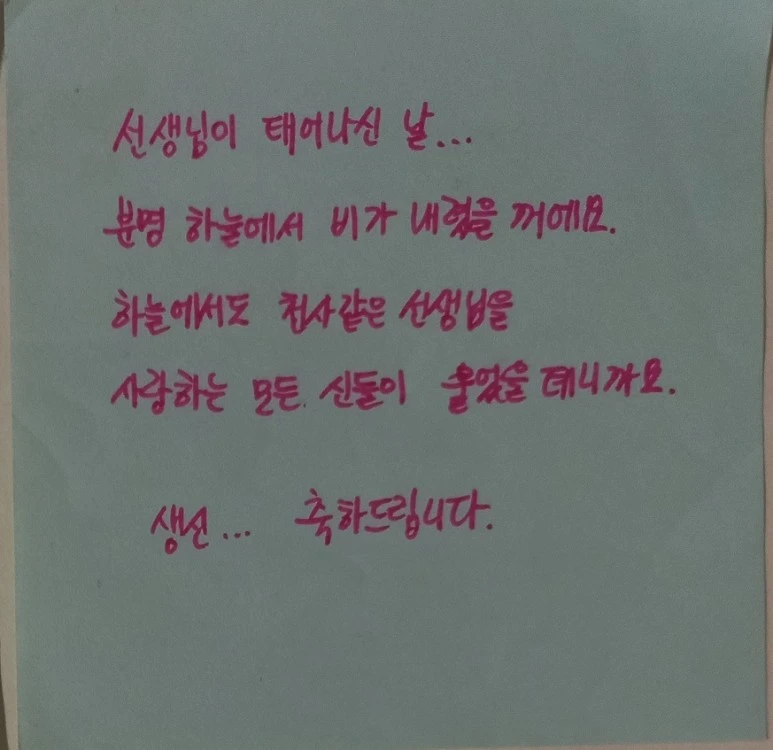 선생님이 태어나신 날...
분명 하늘에서 비가 내렸을 꺼에요.
하늘에서도 천사같은 선생님을
사랑하는 모든 신들이 울었을 테니까요.
생신... 축하드립니다.